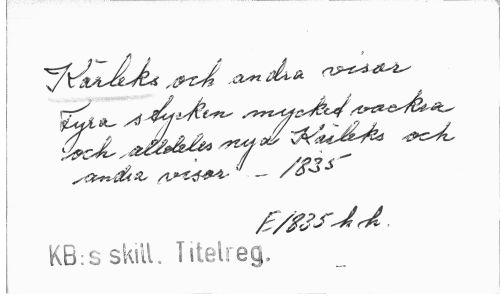 Kärleks och andra visor
Fyra stycken mycket vackra
och alldeles nya Kärleks och
andra visor. – 1835
E 1835 h h.
KB:s skill. Titelreg.